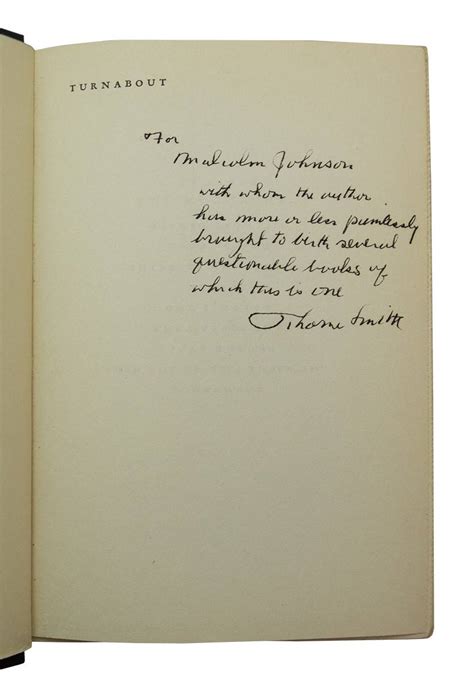 TURNABOUT
For
Malcolm Johnson
with whom the author
has more or less painlessly
brought to birth several
questionable books of
which this is one
Thorne Smith